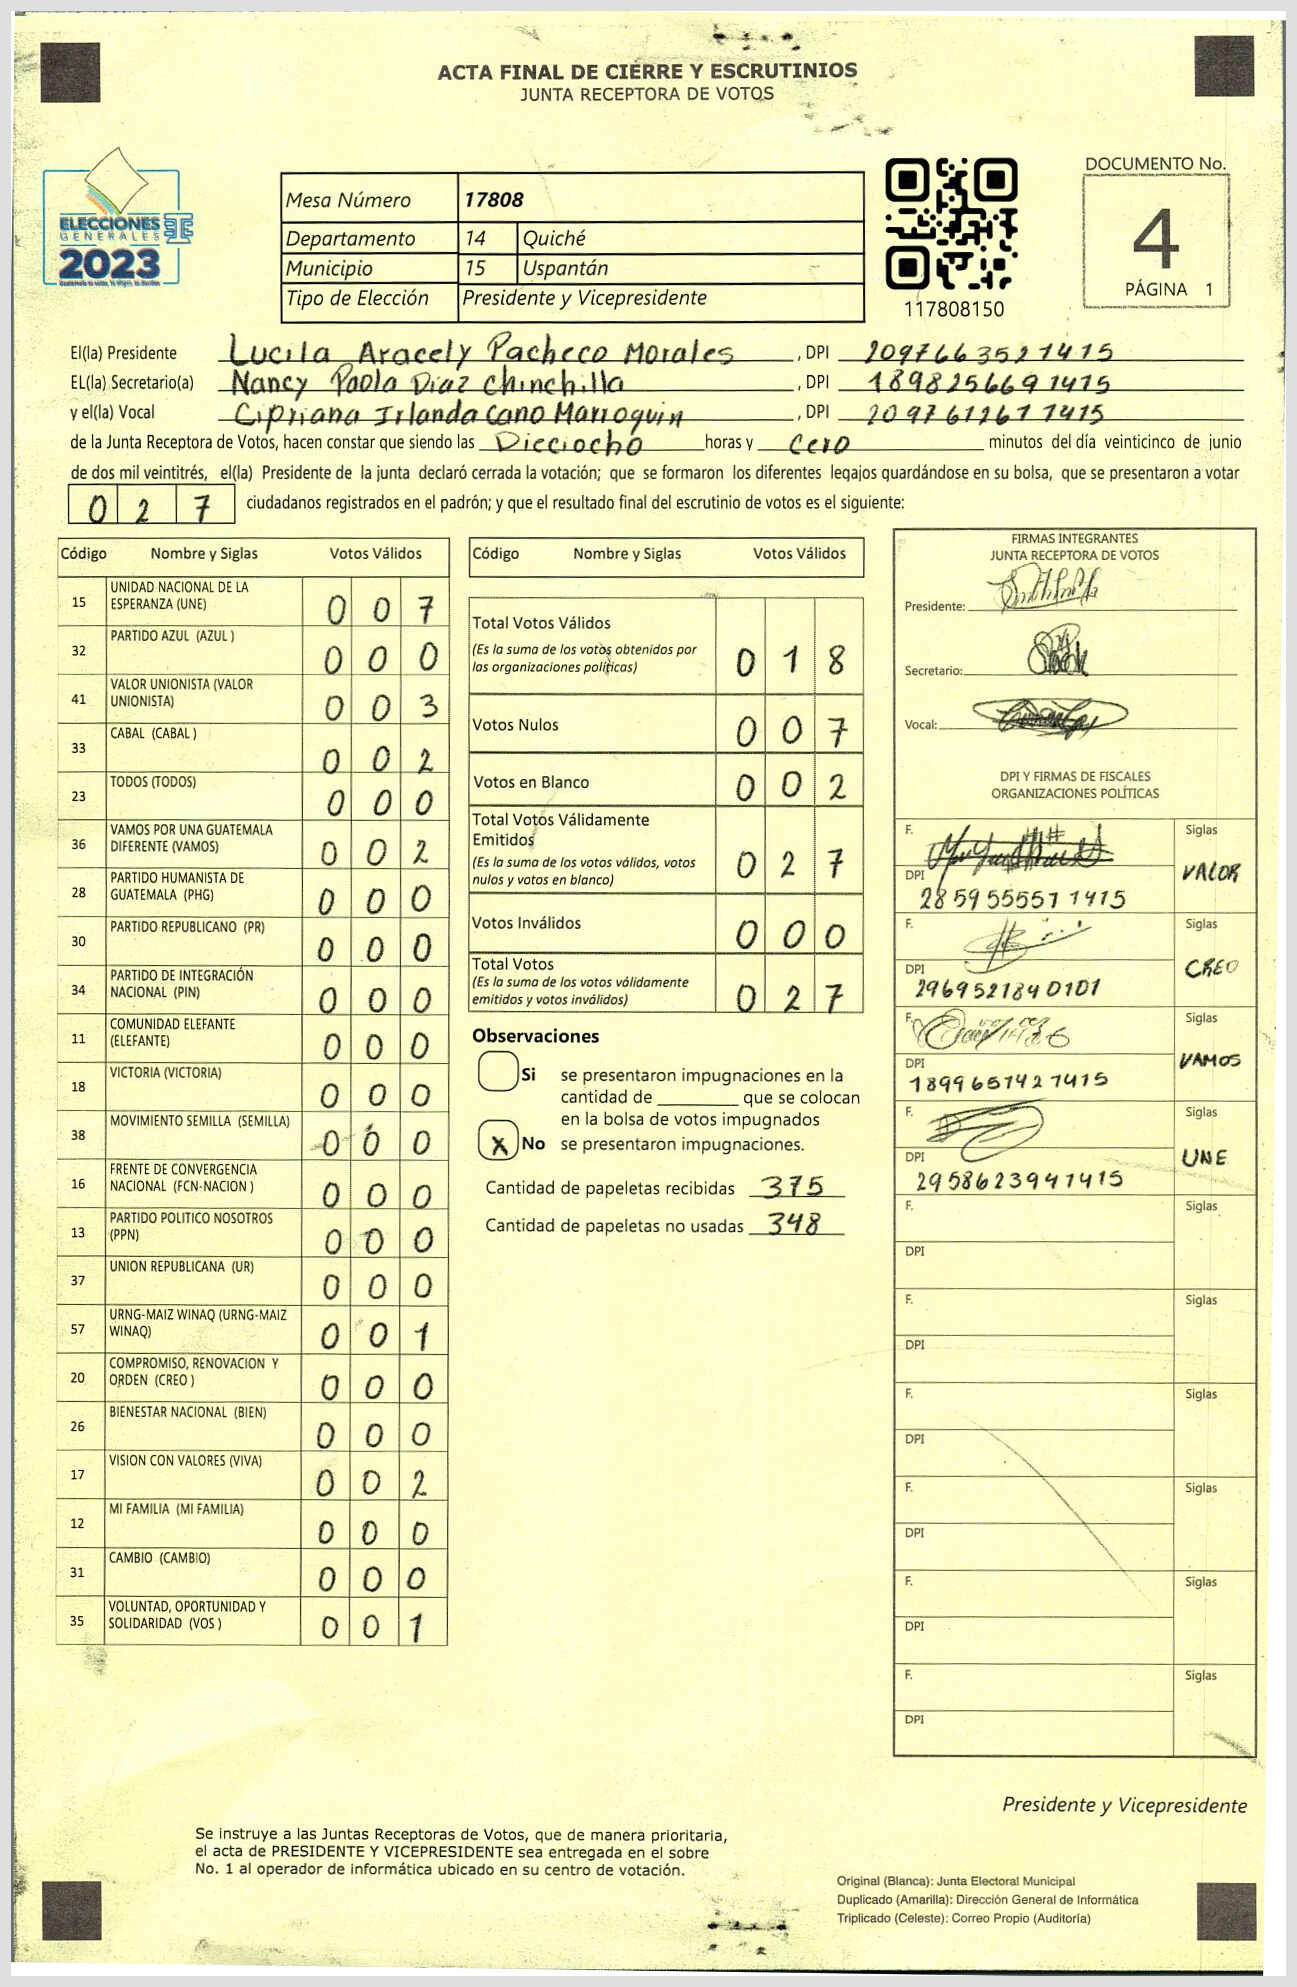 ACTA FINAL DE CIERRE Y ESCRUTINIOS
JUNTA RECEPTORA DE VOTOS
ELECCIONES
GENERALES
2023
Mesa Número 17808
Departamento 14 Quiché
Municipio 15 Uspantán
Tipo de Elección Presidente y Vicepresidente
117808150
DOCUMENTO No.
4
PÁGINA 1
El(la) Presidente Lucila Aracely Pacheco Morales, DPI 2097663521415
EL(la) Secretario(a) Nancy Paola Diaz Chinchilla, DPI 1898256691415
y el(la) Vocal Cipriana Irlanda Cano Marroquin, DPI 2097612671415
de la Junta Receptora de Votos, hacen constar que siendo las Dieciocho horas y cero minutos del día veinticinco de junio
de dos mil veintitrés, el(la) Presidente de la junta declaró cerrada la votación; que se formaron los diferentes legajos guardándose en su bolsa, que se presentaron a votar
0 2 7 ciudadanos registrados en el padrón; y que el resultado final del escrutinio de votos es el siguiente:
Código Nombre y Siglas Votos Válidos
15 UNIDAD NACIONAL DE LA
ESPERANZA (UNE) 0 0 7
32 PARTIDO AZUL (AZUL ) 0 0 0
41 VALOR UNIONISTA (VALOR
UNIONISTA) 0 0 3
33 CABAL (CABAL ) 0 0 2
23 TODOS (TODOS) 0 0 0
36 VAMOS POR UNA GUATEMALA
DIFERENTE (VAMOS) 0 0 2
28 PARTIDO HUMANISTA DE
GUATEMALA (PHG) 0 0 0
30 PARTIDO REPUBLICANO (PR) 0 0 0
34 PARTIDO DE INTEGRACIÓN
NACIONAL (PIN) 0 0 0
11 COMUNIDAD ELEFANTE
(ELEFANTE) 0 0 0
18 VICTORIA (VICTORIA) 0 0 0
38 MOVIMIENTO SEMILLA (SEMILLA) 0 0 0
16 FRENTE DE CONVERGENCIA
NACIONAL (FCN-NACION ) 0 0 0
13 PARTIDO POLITICO NOSOTROS
(PPN) 0 0 0
37 UNION REPUBLICANA (UR) 0 0 0
57 URNG-MAIZ WINAQ (URNG-MAIZ
WINAQ) 0 0 1
20 COMPROMISO, RENOVACION Y
ORDEN (CREO ) 0 0 0
26 BIENESTAR NACIONAL (BIEN) 0 0 0
17 VISION CON VALORES (VIVA) 0 0 2
12 MI FAMILIA (MI FAMILIA) 0 0 0
31 CAMBIO (CAMBIO) 0 0 0
35 VOLUNTAD, OPORTUNIDAD Y
SOLIDARIDAD (VOS ) 0 0 1
Código Nombre y Siglas Votos Válidos
Total Votos Válidos
(Es la suma de los votos obtenidos por
las organizaciones políticas) 0 1 8
Votos Nulos 0 0 7
Votos en Blanco 0 0 2
Total Votos Válidamente
Emitidos
(Es la suma de los votos válidos, votos
nulos y votos en blanco) 0 2 7
Votos Inválidos 0 0 0
Total Votos
(Es la suma de los votos válidamente
emitidos y votos inválidos) 0 2 7
Observaciones
Si se presentaron impugnaciones en la
cantidad de ________ que se colocan
en la bolsa de votos impugnados
X No se presentaron impugnaciones.
Cantidad de papeletas recibidas 375
Cantidad de papeletas no usadas 348
FIRMAS INTEGRANTES
JUNTA RECEPTORA DE VOTOS
Presidente:
Secretario:
Vocal:
DPI Y FIRMAS DE FISCALES
ORGANIZACIONES POLÍTICAS
F. Siglas
VALOR
DPI
2859555571415
F. Siglas
CREO
DPI
2969521840101
F. Siglas
VAMOS
DPI
1899657421415
F. Siglas
UNE
DPI
2958623941415
F. Siglas
DPI
F. Siglas
DPI
F. Siglas
DPI
F. Siglas
DPI
F. Siglas
DPI
F. Siglas
DPI
Presidente y Vicepresidente
Se instruye a las Juntas Receptoras de Votos, que de manera prioritaria,
el acta de PRESIDENTE Y VICEPRESIDENTE sea entregada en el sobre
No. 1 al operador de informática ubicado en su centro de votación.
Original (Blanca): Junta Electoral Municipal
Duplicado (Amarilla): Dirección General de Informática
Triplicado (Celeste): Correo Propio (Auditoría)